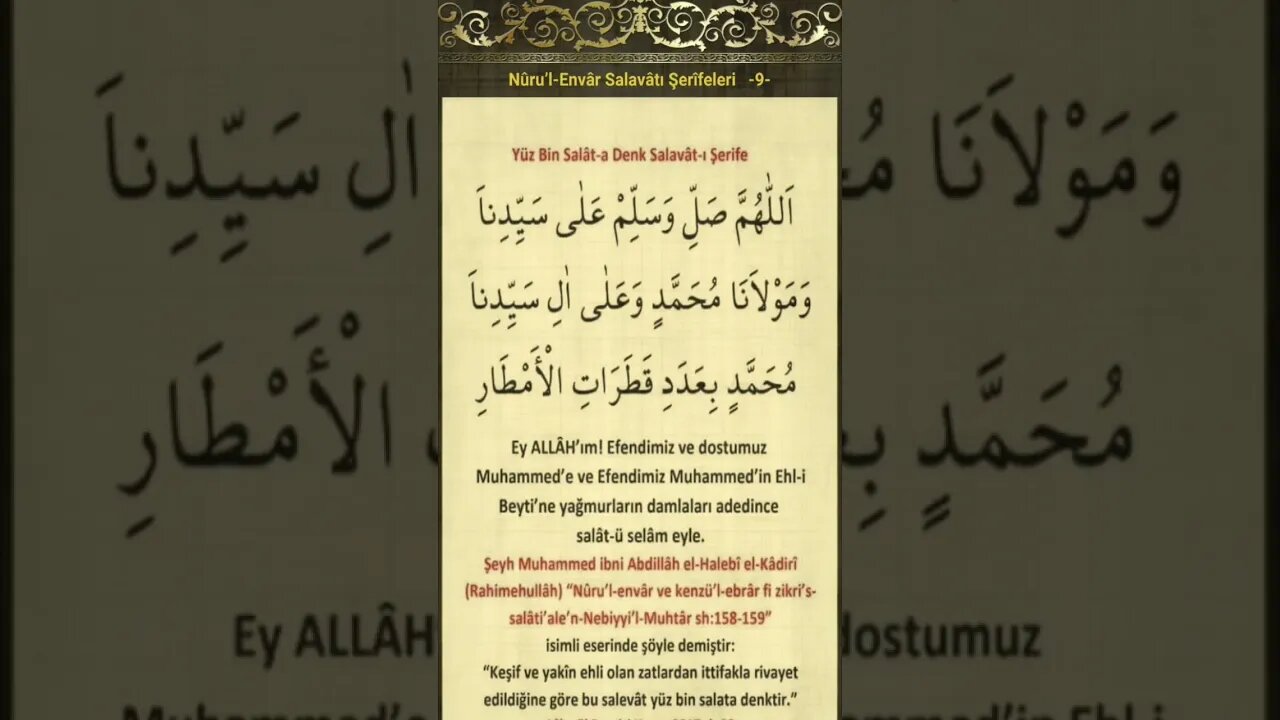 Nûru'l-Envâr Salavâtı Şerîfeleri -9-
Yüz Bin Salât-a Denk Salavât-ı Şerife
اَللّٰهُمَّ صَلِّ وَسَلِّمْ عَلٰى سَيِّدِناَ
وَمَوْلاَنَا مُحَمَّدٍ وَعَلٰى اٰلِ سَيِّدِناَ
مُحَمَّدٍ بِعَدَدِ قَطَرَاتِ الْأَمْطَارِ
Ey ALLÂH'ım! Efendimiz ve dostumuz
Muhammed'e ve Efendimiz Muhammed'in Ehl-i
Beyti'ne yağmurların damlaları adedince
salât-ü selâm eyle.
Şeyh Muhammed ibni Abdillâh el-Halebî el-Kâdirî
(Rahimehullâh) “Nûru'l-envâr ve kenzü'l-ebrâr fi zikri's-
salâti'ale'n-Nebiyyi'l-Muhtâr sh:158-159”
isimli eserinde şöyle demiştir:
“Keşif ve yakîn ehli olan zatlardan ittifakla rivayet
edildiğine göre bu salevât yüz bin salata denktir.”